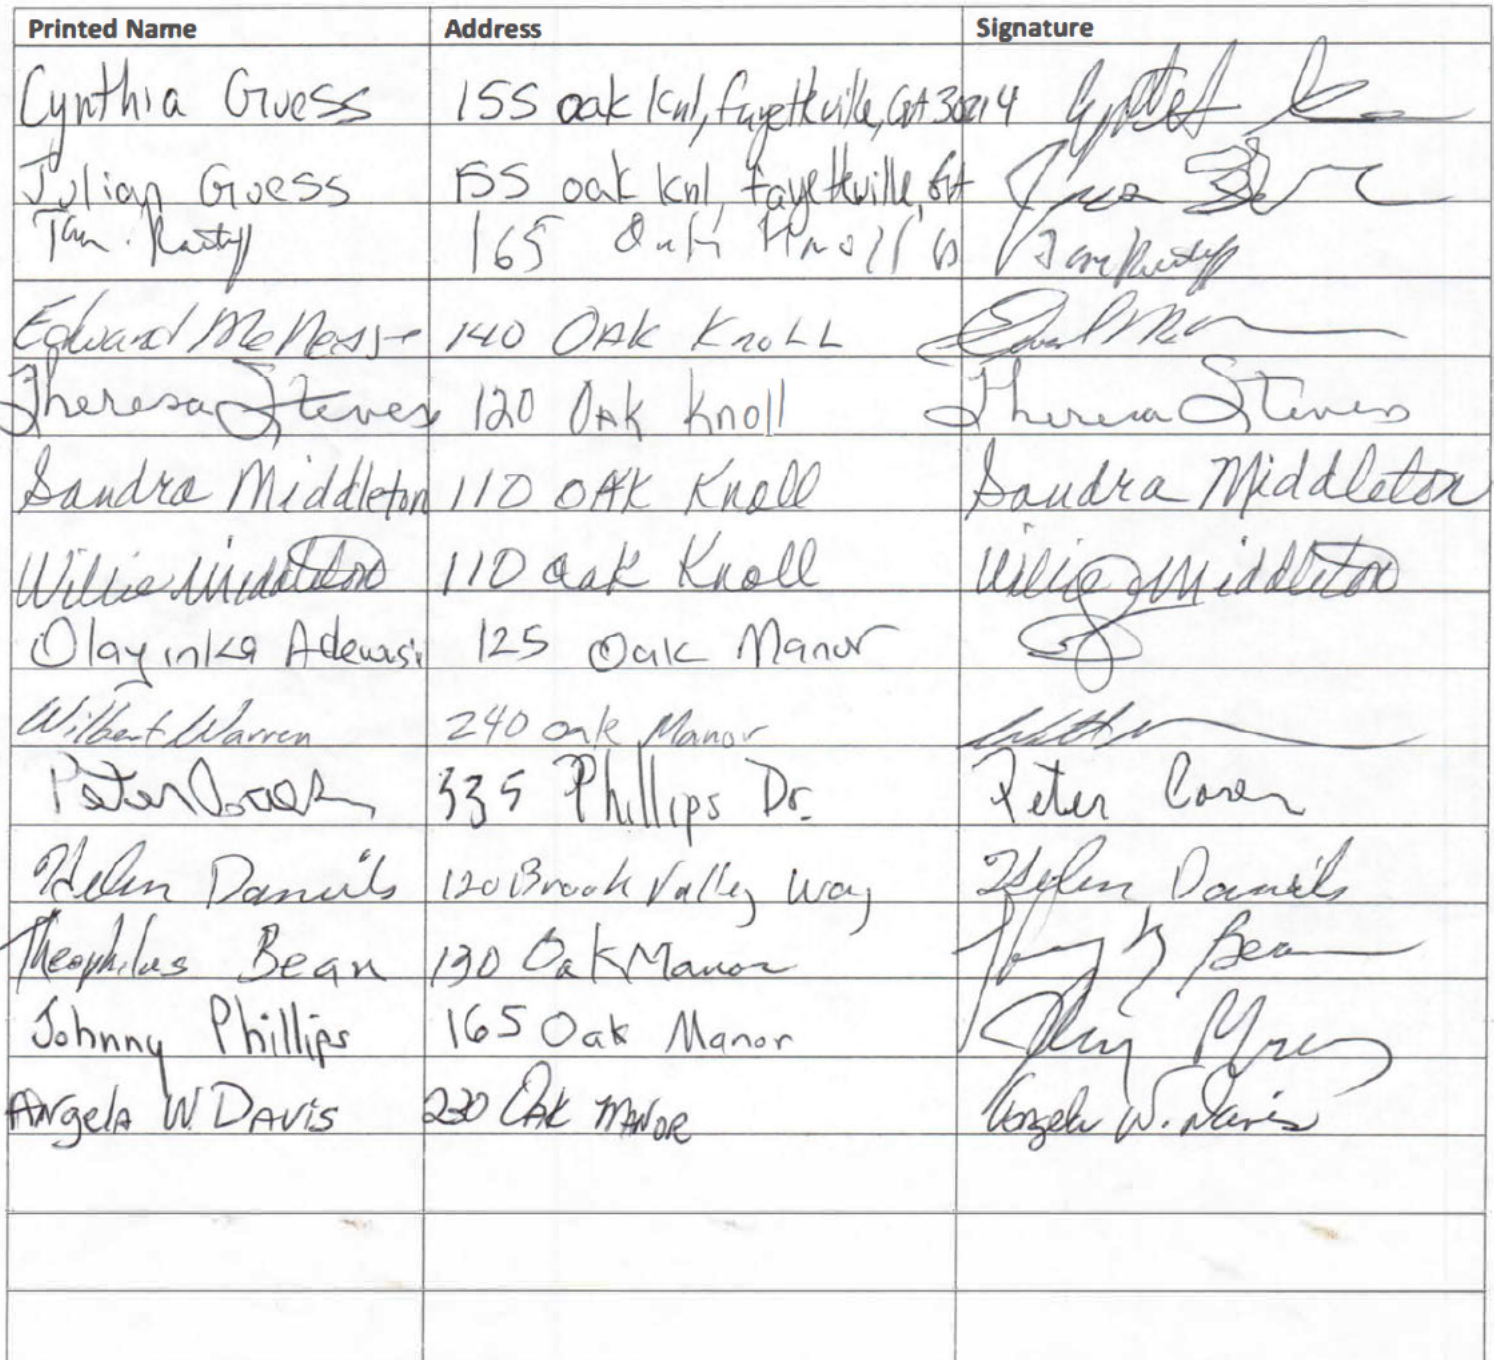 Printed Name Address Signature
Cynthia Guess 155 oak knl, fayetteville, GA 30214
Julian Guess 155 oak knl, fayetteville, GA
165
Edward 140 OAK KnoLL
Theresa Steves 120 OAK Knoll Theresa Steves
Sandra Middleton 110 OAK Knoll Sandra Middleton
Willie Middleton 110 Oak Knoll Willie Middleton
Olayinka Adewusi 125 Oak Manor
Wilbert Warren 240 oak Manor
Peter 335 Phillips Dr. Peter
Helen Daniels 120 Brook Valley Way Helen Daniels
Theophilus Bean 130 Oak Manor Bean
Johnny Phillips 165 Oak Manor
Angela W. DAVIS 230 OAK MANOR Angela W. Davis